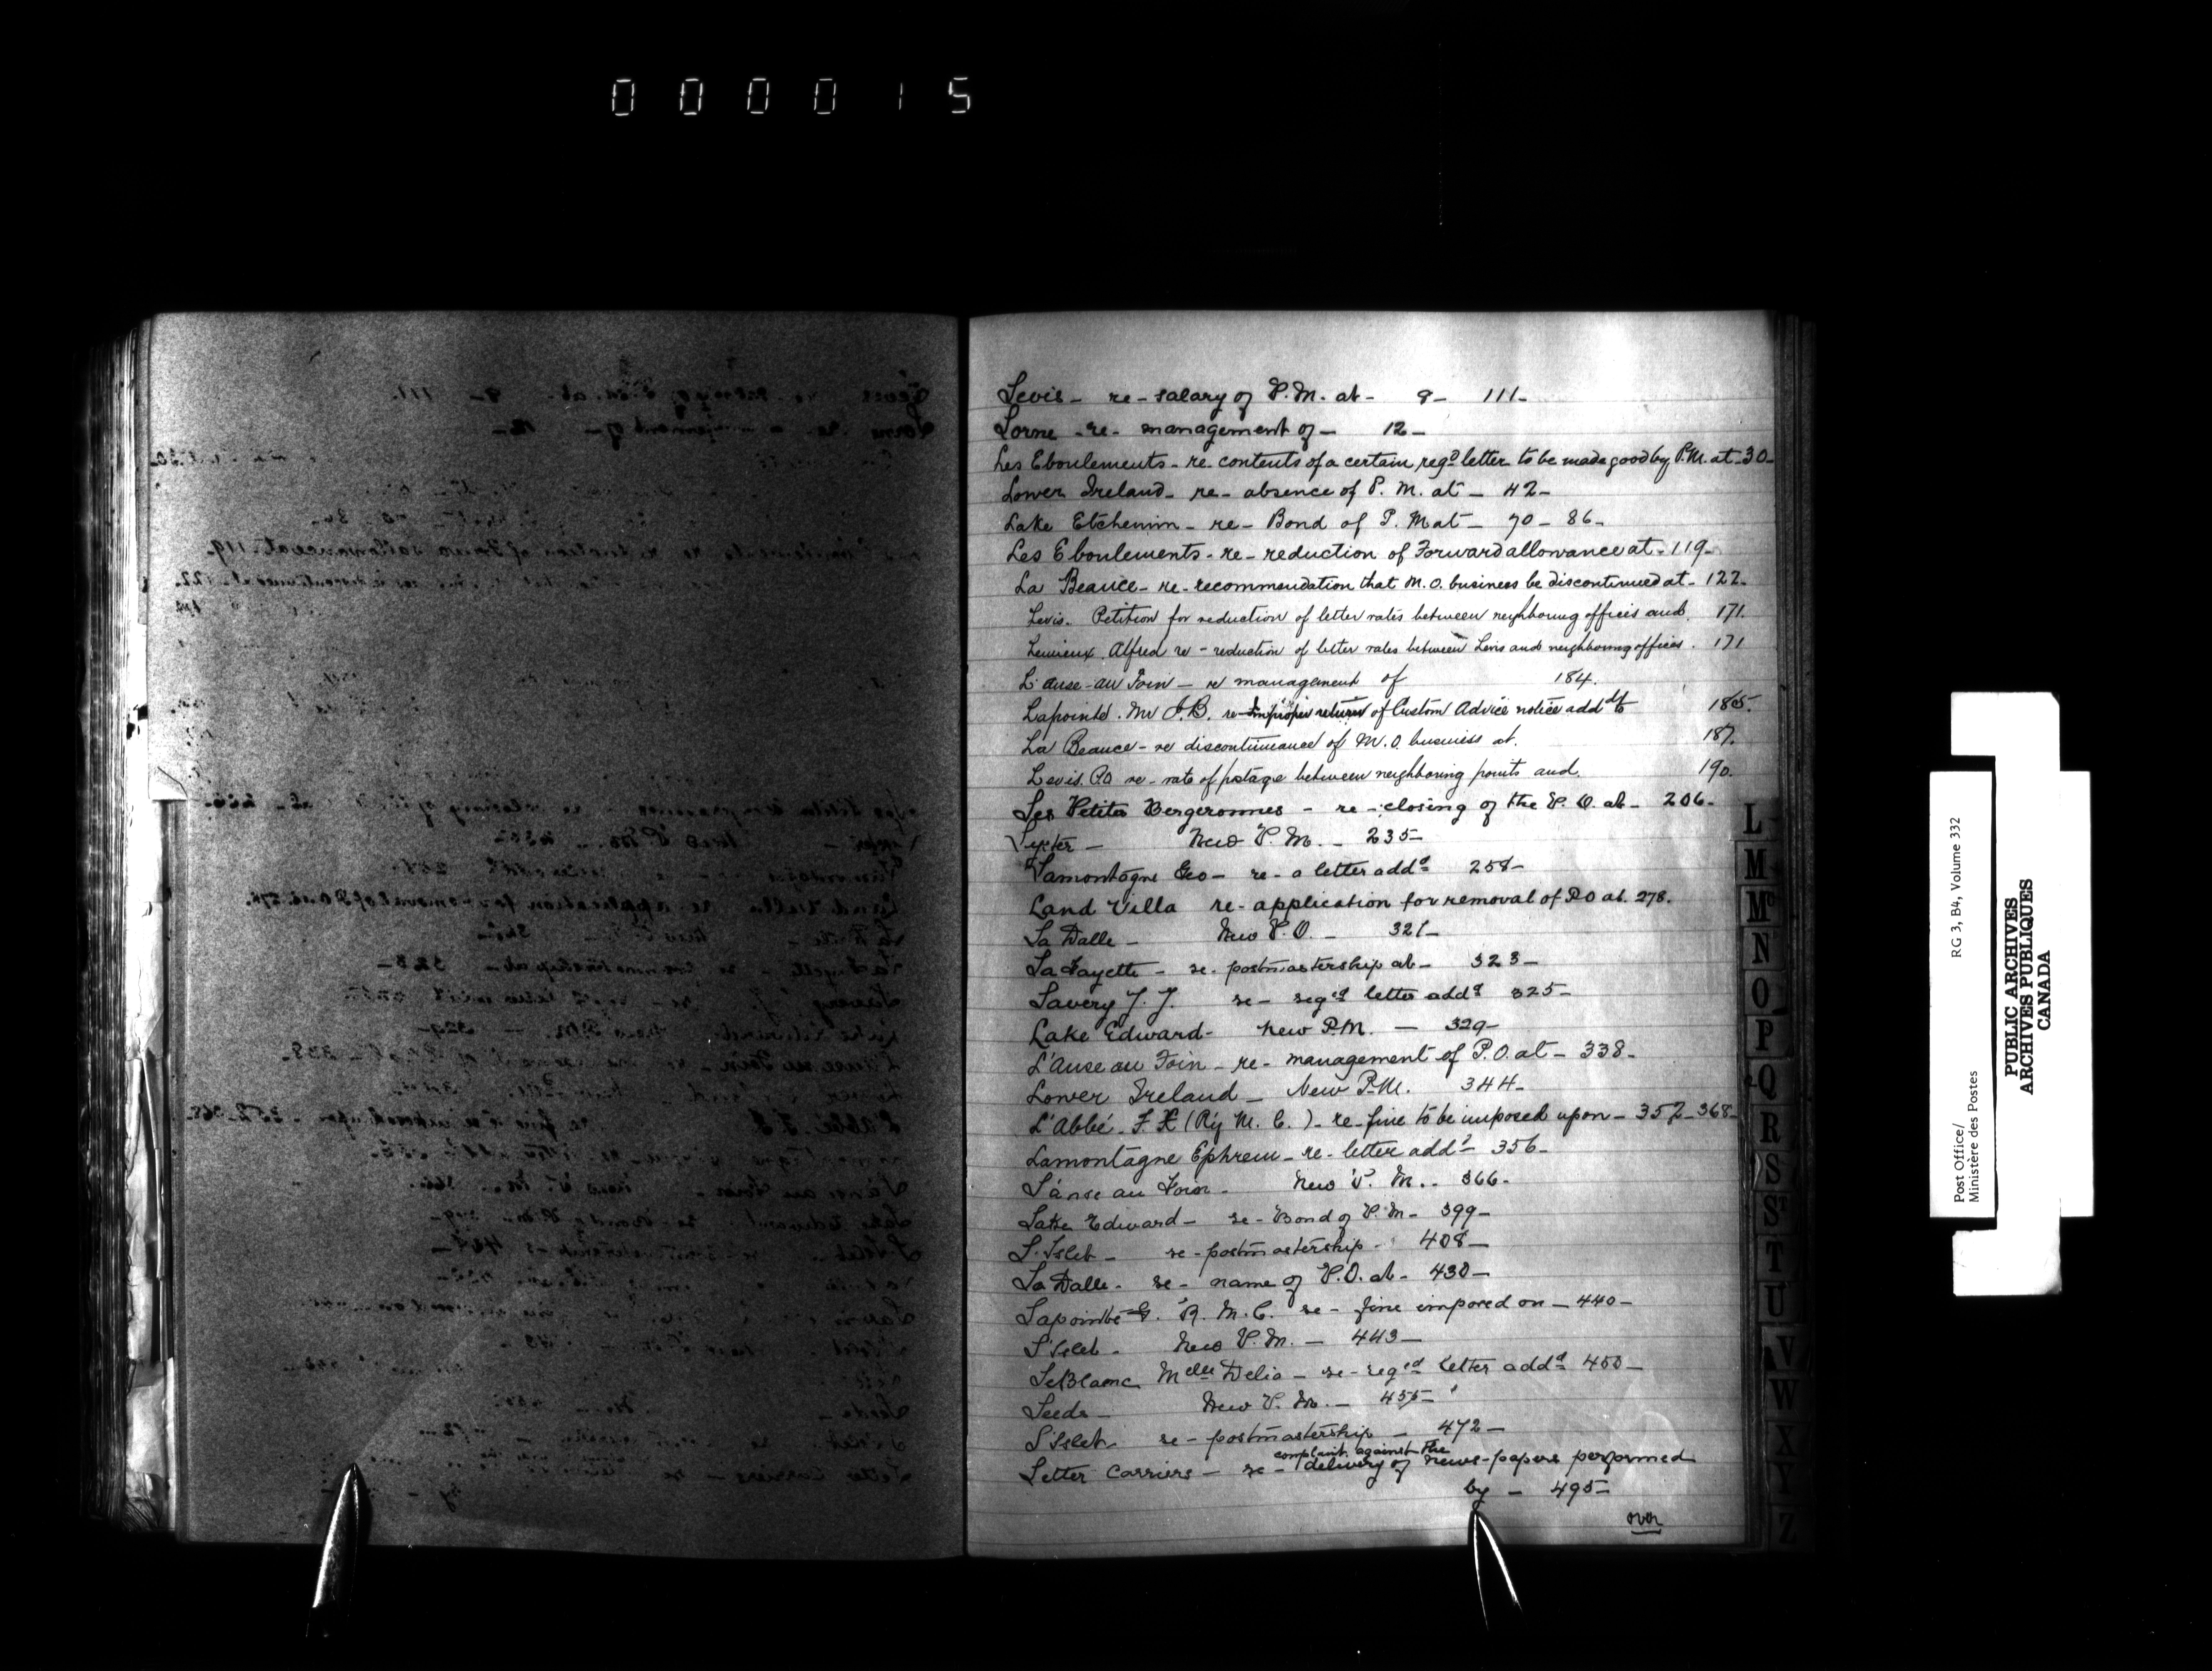 000015
Levis - re - salary of P.M. at - 9 - 111 -
Lorne - re - management of - 12 -
Les Eboulements - re contents of a certain regd letter to be made good by P.M. at - 30 -
Lower Ireland - re - absence of P. M. at - 42 -
Lake Etchemin - re - Bond of P. M at - 70 - 86 -
Les Eboulements - re - reduction of Forward allowance at - 119 -
La Beauce - re - recommendation that M.O. business be discontinued at - 122 -
Levis. Petition for reduction of letter rates between neighboring offices and 171.
Lemieux, Alfred re - reduction of letter rates between Levis and neighboring offices. 171
L'anse-au Foin - re management of 184.
Lapointe. Mr J.B. re - improper return of Custom Advice notice addd to 185.
La Beauce - re discontinuance of M.O. business at. 187.
Levis. P.O re - rate of postage between neighboring points and. 190.
Les Petites Bergeronnes - re - closing of the P. O. at - 206 -
Lyster - New P. M. - 235 -
Lamontagne Geo - re - a letter addd 258 -
Land Villa re - application for removal of P.O at. 278.
La Dalle - New P.O. - 321 -
LaFayette - re - postmastership at - 323 -
Lavery J. J. re - regd letter addd 325 -
Lake Edward - New P.M. - 329 -
L'Anse au Foin - re - management of P.O. at - 338 -
Lower Ireland - New P.M. 344 -
L'Abbé - F. X (Ry M. C.) - re - fine to be imposed upon - 352 - 368 -
Lamontagne Ephrem - re - letter addd - 356 -
L'anse au Foin - New P. M. - 366 -
Lake Edward - re - Bond of P. M - 399 -
L'Islet - re - postmastership - 408 -
La Dalle - re - name of P.O. at - 430 -
Lapointe G. R. M. C. re - fine imposed on - 440 -
L'Islet - New P. M. - 443 -
LeBlanc Melle Delia - re - regd letter addd 450 -
Leeds - New P. M. - 455 -
L'Islet re - postmastership - 472 -
complaint against the
Letter Carriers - re - delivery of news-papers performed
by - 495 -
over
L
M
Mc
N
O
P
Q
R
S
St
T
U
V
W
X
Y
Z
Post Office/ RG 3, B4, Volume 332
Ministère des Postes
PUBLIC ARCHIVES
ARCHIVES PUBLIQUES
CANADA